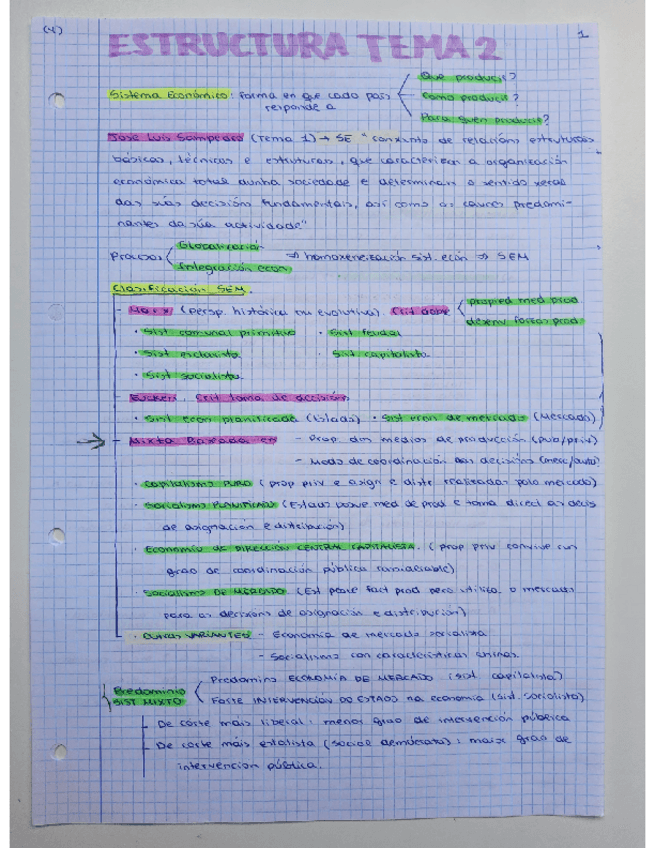 (4)
1
ESTRUCTURA TEMA 2
Sistema Económico: forma en que cada país responde a
Que producir?
Como producir?
Para quen producir?
José Luis Sampedro (Tema 1) → SE "conxunto de relacións estruturas
básicas, técnicas e estruturas, que caracterizan a organización
económica total dunha sociedade e determinan o sentido xeral
das súas decisión fundamentais, así como os cauces predomi-
nantes da súa actividade"
Procesos
Globalización
Integración econ
⇒ homoxeneización sist. econ ⇒ SEM
Clasificación SEM.
- Marx (persp. histórica ou evolutiva) Crit
propied med prod
desenv forzas prod
· Sist comunal primitivo · Sist feudal
· Sist esclavista · Sist capitalista
· Sist socialista
- Eucken. Crit toma de decisión
· Sist econ planificada (Estado) · Sist econ de mercado (Mercado)
→ - Mixta Baseada en - Prop. dos medios de producción (pub/priv)
- Modo de coordinación das decisións (merc/auto)
· Capitalismo PURO (prop priv e asign e distr realizadas polo mercado)
· Socialismo PLANIFICADO (Estado posue med de prod e toma direct as decis
de asignación e distribución)
· Economía de DIRECCIÓN CENTRAL CAPITALISTA. (prop priv convive cun
grao de coordinación pública considerable)
· Socialismo DE MERCADO (Est posue fact prod pero utiliza o mercado
para as decisións de asignación e distribución)
· OUTRAS VARIANTES - Economía de mercado socialista
- Socialismo con características chinas.
Predominio
SIST MIXTO
Predomina ECONOMÍA DE MERCADO (sist capitalista)
Forte INTERVENCIÓN DO ESTADO na economía (sist. socialista)
- De corte mais liberal: menos grao de intervención pública
- De corte máis estatista (social demócrata): maior grao de
intervención pública.